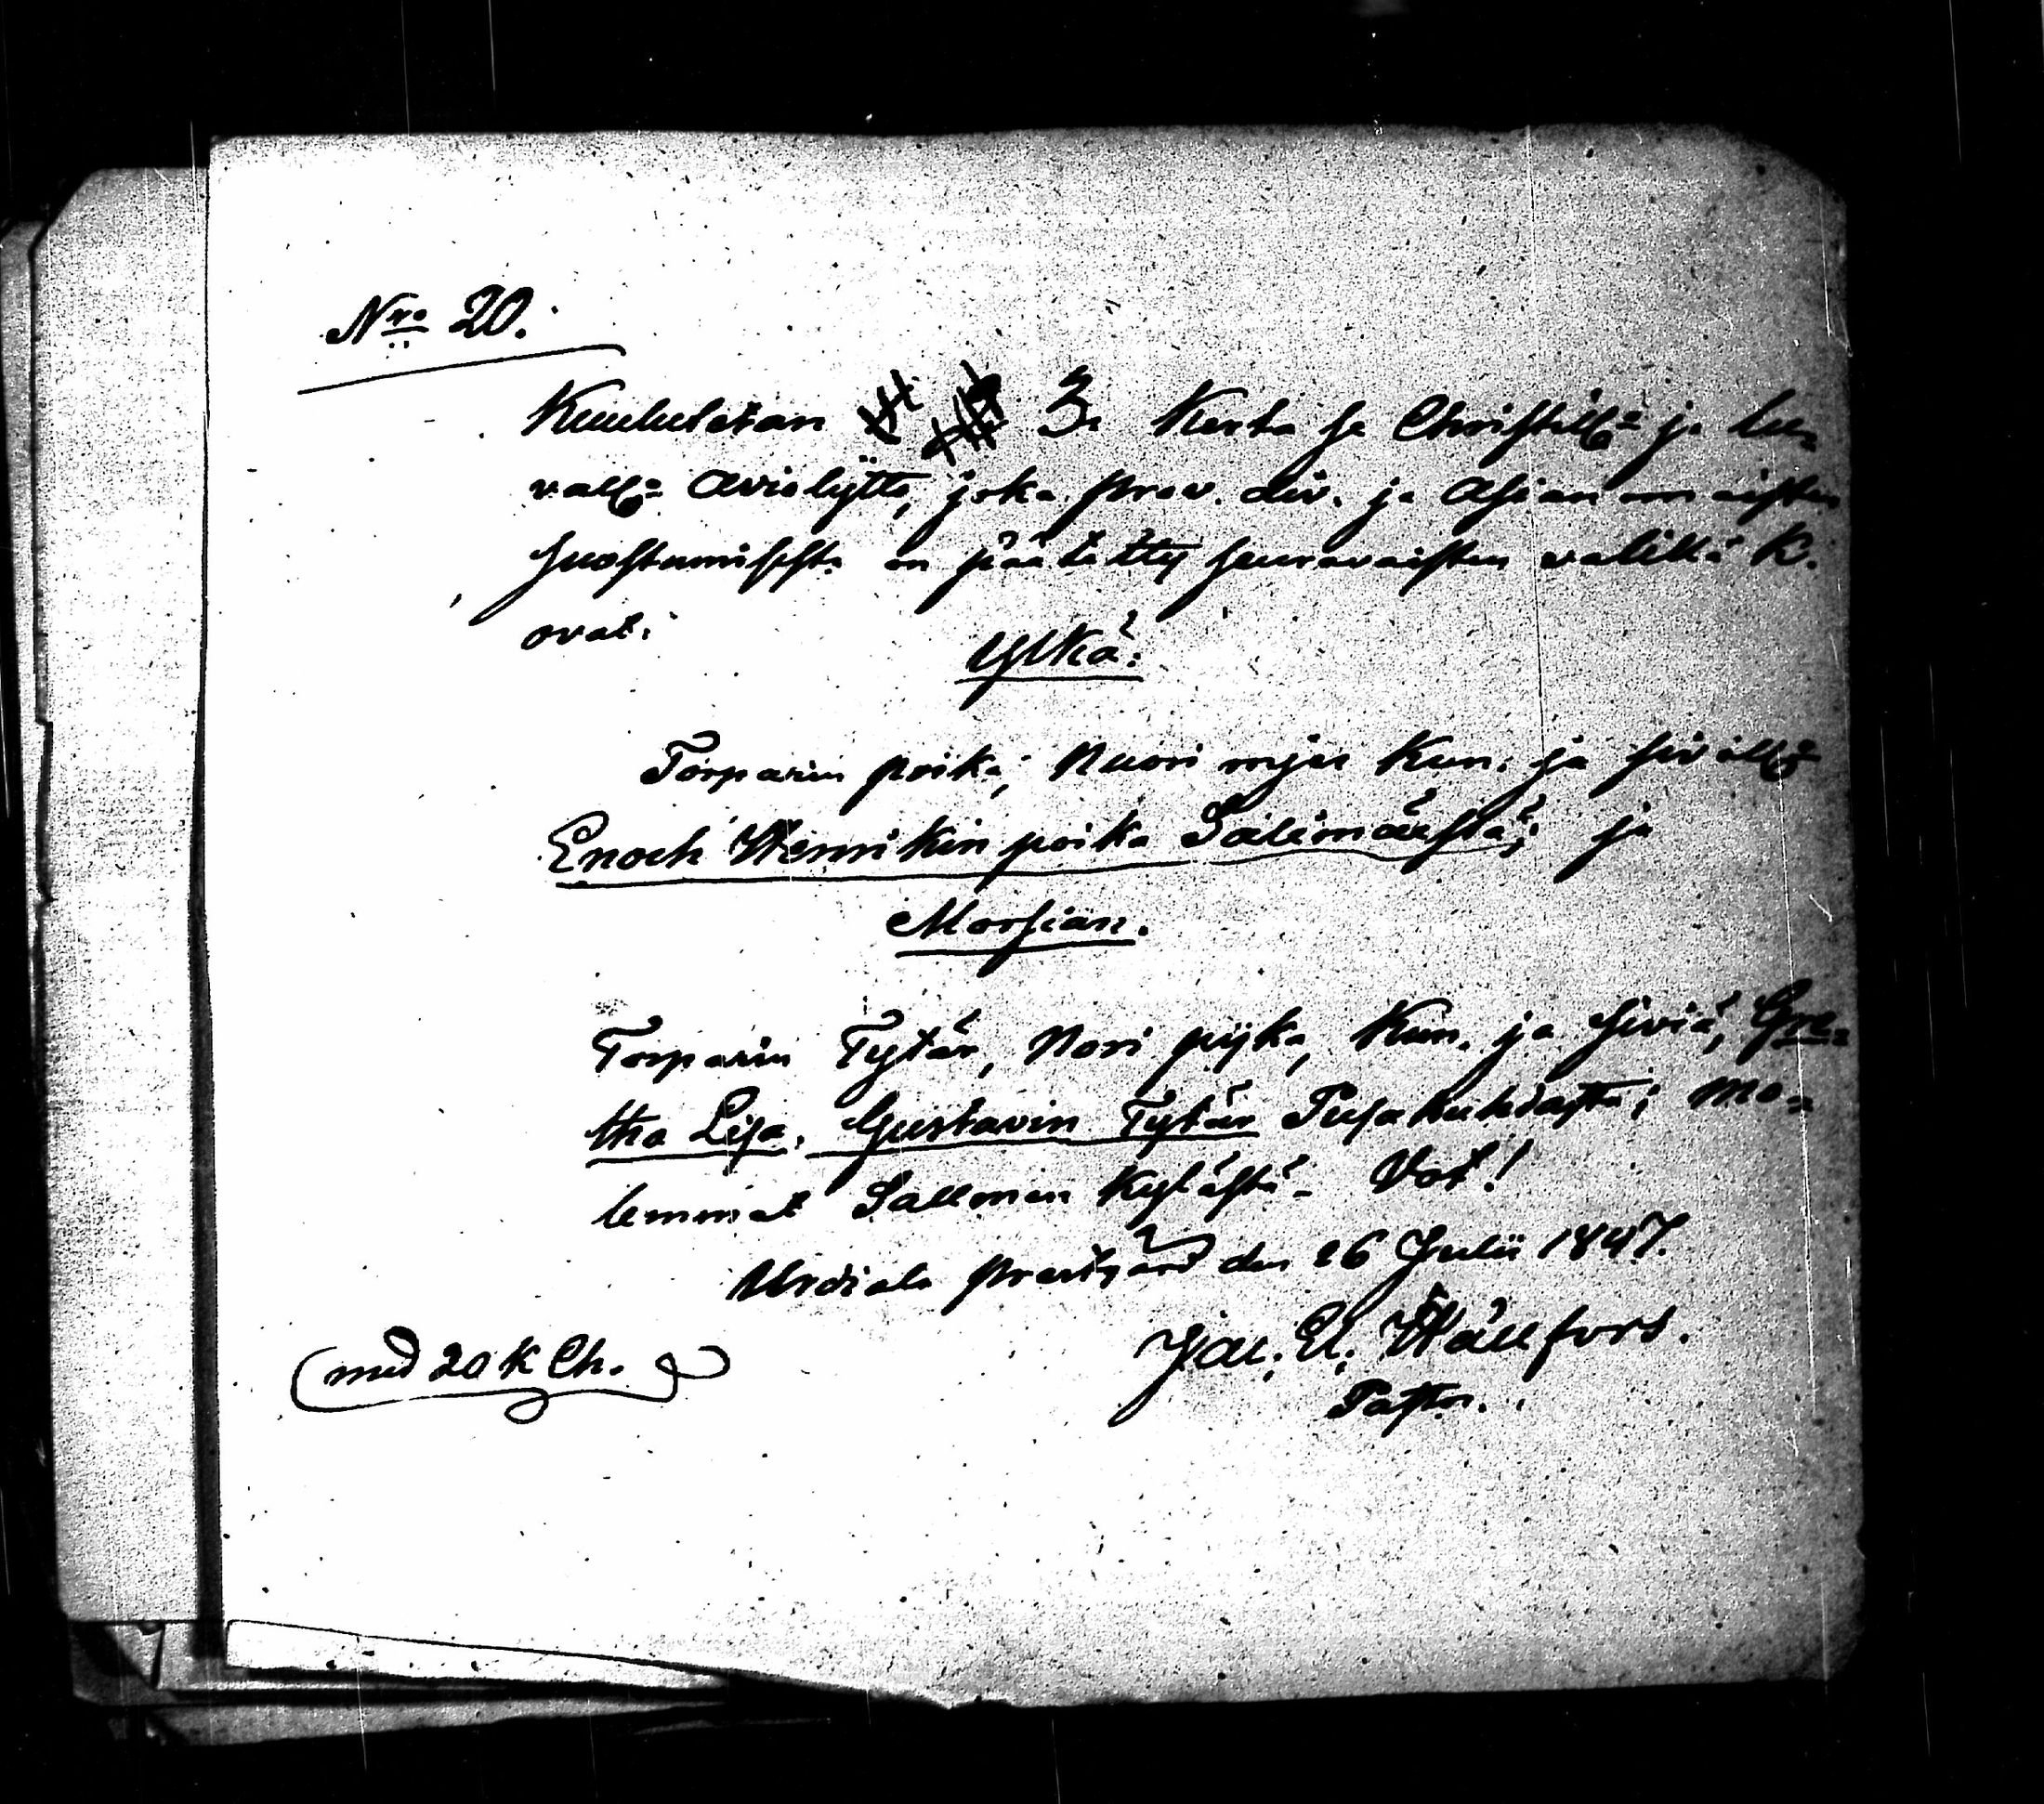 Nro 20.
Kuulutetan 3. Kerta se Christill. ja lu=
vall. Avioliitto, joka prev. div. ja Asianomaisten
suostumisesta on päätetty seuravaisten välillä K.
ovat.
Ylkä:
Torparin poika, Nuori mjes Kun. ja sivillä
Enoch Henrikin poika Sälimäestä; ja
Morsian.
Torparin Tytär, Nori pijka, Kun. ja siviä, Gre=
tha Lisa. Gustavin Tytär Pusakuhdasta; mo=
lemmat Sallmen Kylästä. Ut!
Urdiala Prestgård den 26 Julii 1847.
Jac. El. Wällfors.
Pastor.
(med 20 K Ch.)